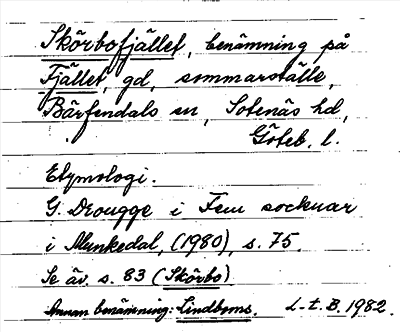 Skörbofjället, benämning på
Fjället, gd, sommarställe,
Bärfendals sn, Sotenäs hd,
Göteb. l.
Etymologi.
G. Drougge i Fem socknar
i Munkedal, (1980), s. 75.
Se äv. s. 83 (Skörbo)
Annan benämning: Lindboms. L-t. B. 1982.